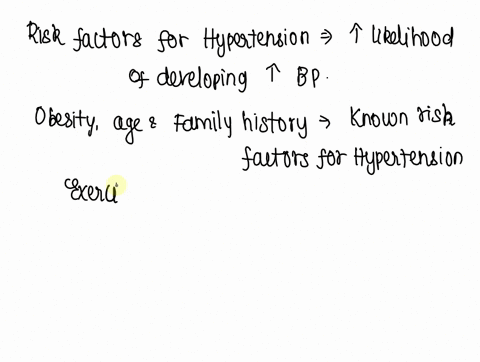 Risk factors for Hypertension ⇒ ↑ likelihood
of developing ↑ BP.
Obesity, age & Family history → Known risk
factors for Hypertension
Exerci